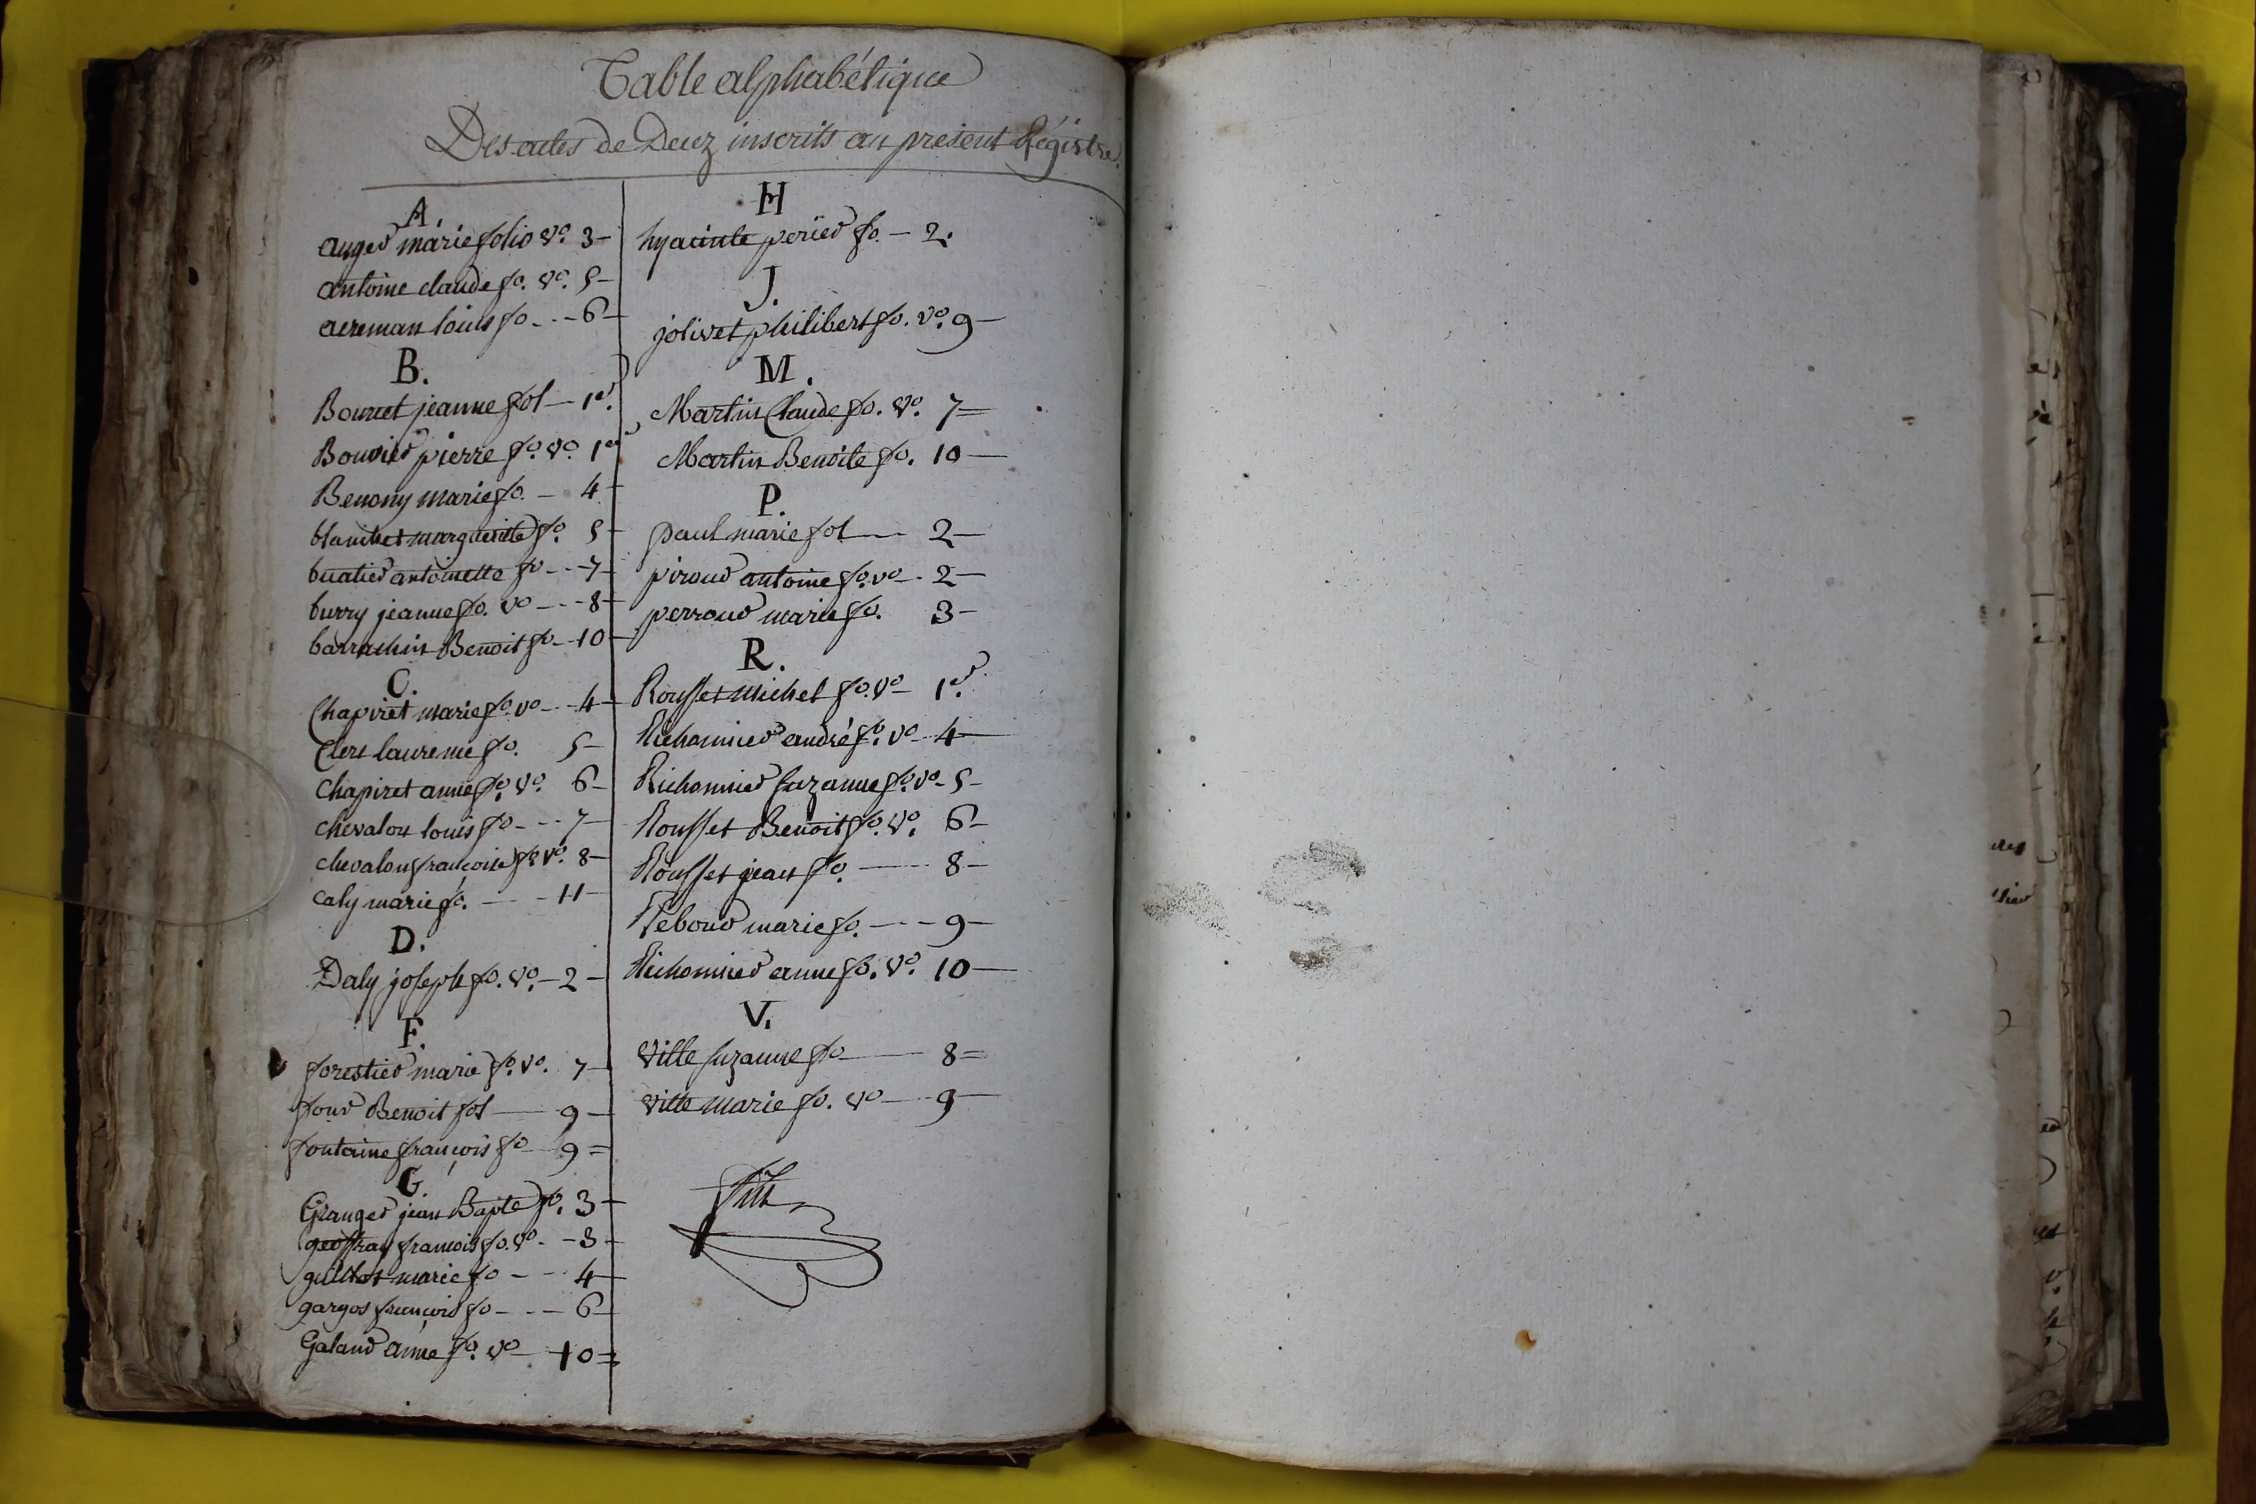 Table alphabétique
Des actes de Decez inscrits au present Régistre.
A.
auger marie folio vo. 3
antoine claude fo. vo. 5
acreman louis fo 6
B.
Bourcet jeanne fol 1er.
Bouvier pierre fo. vo. 1er
Benony marie fo. 4
blanchet marguerite fo. 5
buatier antoinette fo 7
burry jeanne fo. vo 8
barrachin Benoit fo 10
C.
Chapiret marie fo. vo 4
Clerc laurence fo. 5
Chapiret anne fo. vo. 6
chevalon louis fo 7
chevalon françoise fo. vo. 8
caly marie fo. 11
D.
Daly joseph fo. vo. 2
F.
forestier marie fo. vo. 7
four Benoit fol 9
fontaine françois fo 9
G.
Granger jean Bapte fo. 3
geoffray francois fo. vo. 3
guillot marie fo 4
gargos françois fo 6
Galand anne fo. vo 10
H
hyacinte perier fo. 2.
J.
jolivet philibert fo. vo. 9
M.
Martin Claude fo. vo. 7
Martin Benoite fo. 10
P.
paul marie fol 2
piroud antoine fo. vo. 2
perroud marie fo. 3
R.
Rousset michel fo. vo 1er.
Richonnier andré fo. vo 4
Richonnier suzanne fo. vo 5
Rousset Benoit fo. vo. 6
Rousset jean fo. 8
Reboud marie fo. 9
Richonnier anne fo. vo. 10
V.
Ville suzanne fo 8
ville marie fo. vo 9